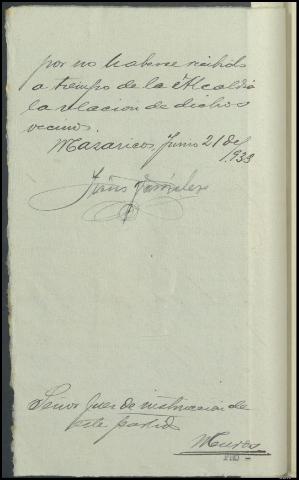 por no haberse recibido
a tiempo de la Alcaldia
la relacion de dichos
vecinos.
Mazaricos, Junio 21 de
1933
Señor Juez de instruccion de
este partido
Muros